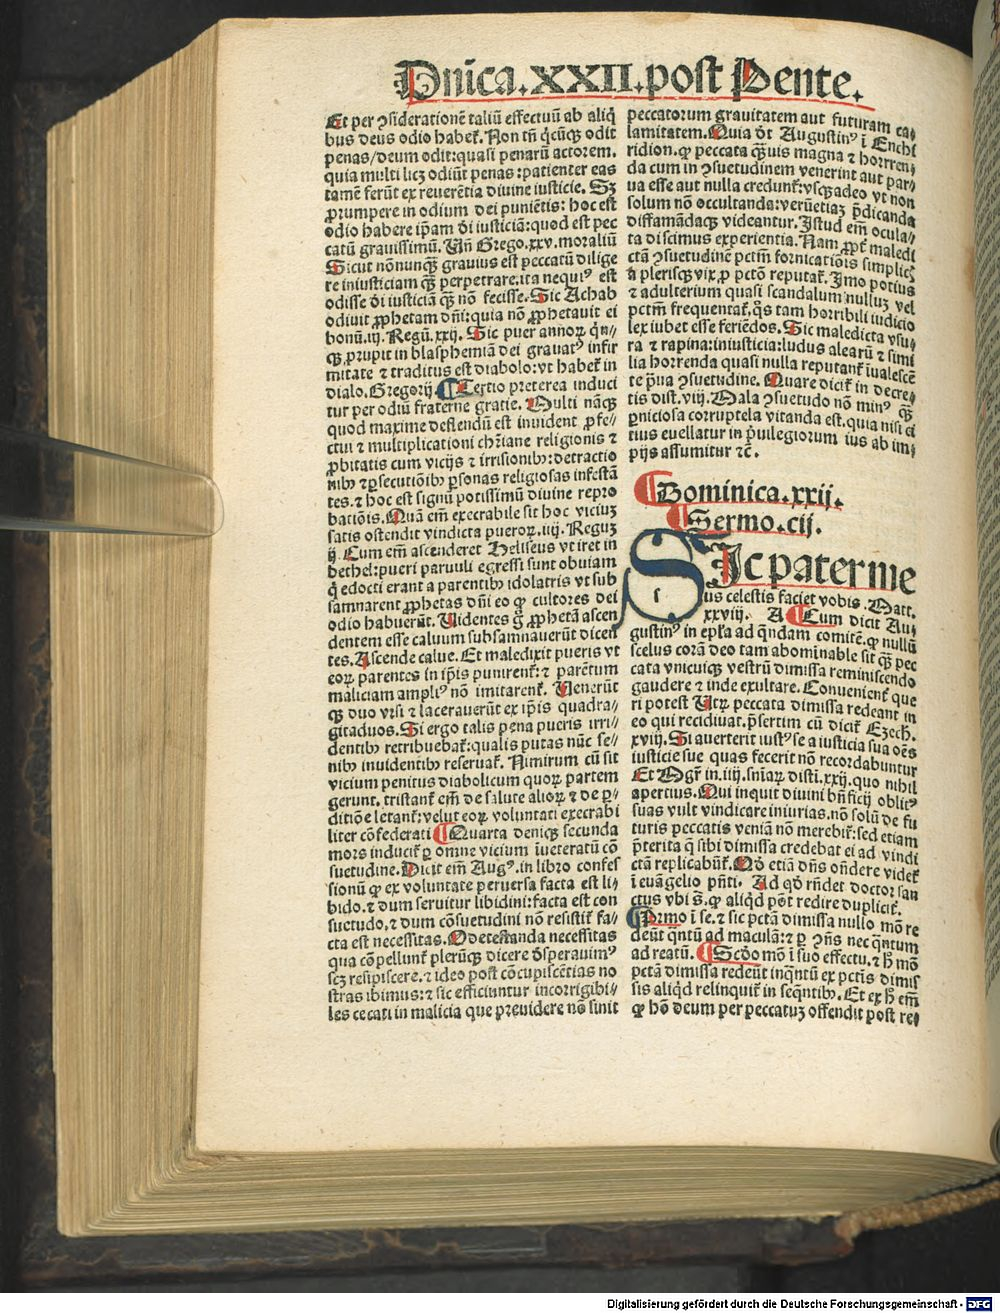 Dnīca.XXII.post Pente.
Et per ꝯsideratioēm taliū effectuū ab aliq̄
bus deus odio habet᷑. Non tn̄ q̄cūq̄ꝫ odit
penas/deum odit:quasi penarū actorem.
quia multi licꝫ odiūt penas:patienter eas
tamē ferūt ex reuerētia diuine iusticie. Sꝫ
ꝓrumpere in odium dei puniētis: hoc est
odio habere ip̄am dī iusticiā:quod est pec
catū grauissimū. Vn̄ Grego.xxv.moraliū
Sicut nōnunqꝫ grauius est peccatū dilige
re iniusticiam qꝫ perpetrare.ita nequiꝰ est
odisse dī iusticiā qꝫ nō fecisse. Sic Achab
odiuit ꝓphetam dn̄i:quia nō ꝓphetauit ei
bonū.iij.Regū.xxij. Sic puer annoꝝ qn̄//
qꝫ.prupit in blasphemiā dei grauatꝰ infir
mitate ⁊ traditus est diabolo:vt habet᷑ in
dialo.Gregorij. ¶ Tertio preterea induci
tur per odiū fraterne gratie. Multi nāqꝫ
quod maxime deflendū est inuident ꝓfe//
ctui ⁊ multiplicationi chr̄iane religionis ⁊
ꝓbitatis cum vicijs ⁊ irrisionibꝫ:detractio
nibꝫ ⁊ ꝑsecutiōibꝫ ꝑsonas religiosas infestā
tes.⁊ hoc est signū potissimū diuine repro
batiōis. Quā em̄ execrabile sit hoc viciuꝫ
satis ostendit vindicta pueroꝝ.iiij.Reguꝫ
ij. Cum em̄ ascenderet Heliseus vt iret in
bethel:pueri paruuli egressi sunt obuiam
q̄ edocti erant a parentibꝫ idolatris vt sub
samnarent ꝓphetas dn̄i eo ꝙ cultores dei
odio habuerūt. Videntes g̊ ꝓphetā ascen
dentem esse caluum subsamnauerūt dicen
tes. Ascende calue. Et maledixit pueris vt
eoꝝ parentes in ip̄is punirent᷑:⁊ parētum
maliciam ampliꝰ nō imitarent᷑. Venerūt
qꝫ duo vrsi ⁊ lacerauerūt ex ip̄is quadra//
gitaduos. Si ergo talis pena pueris irri//
dentibꝫ retribuebat᷑:qualis putas nūc se//
nibꝫ inuidentibꝫ reseruat᷑. Nimirum cū sit
vicium penitus diabolicum quoꝝ partem
gerunt.tristant᷑ em̄ de salute alioꝝ ⁊ de ꝑ//
ditiōe letant᷑:velut eoꝝ voluntati execrabi
liter cōfederati ¶ Quarta deniqꝫ secunda
mors inducit᷑ ꝑ omne vicium iueteratū cō
suetudine. Dicit em̄ Augꝰ.in libro confes
sionū ꝙ ex voluntate peruersa facta est li//
bido.⁊ dum seruitur libidini:facta est con
suetudo.⁊ dum cōsuetudini nō resistit᷑ fa//
cta est necessitas. O detestanda necessitas
qua cōpellunt᷑ pleruqꝫ dicere dsperauimꝰ
scꝫ resipiscere.⁊ ideo post cōcupiscētias no
stras ibimus:⁊ sic efficiuntur incorrigibi//
les cecati in malicia que preuidere nō sinit
peccatorum grauitatem aut futuram ca//
lamitatem. Quia vt Augustinꝰ ī Enchi
ridion.ꝙ peccata qꝫuis magna ⁊ horren//
da cum in ꝯsuetudinem venerint aut par//
ua esse aut nulla credunt᷑:vsqꝫadeo vt non
solum nō occultanda:verūetiaꝫ p̄dicanda
diffamādaqꝫ videantur. Istud em̄ ocula//
ta discimus experientia. Nam ꝓpt᷑ maledi
ctā ꝯsuetudinē pctm̄ fornicatiōis simplicꝭ
a plerisqꝫ vix ꝓ pctō reputat᷑. Imo potius
⁊ adulterium quasi scandalum nulluꝫ vel
pctm̄ frequentat᷑.q̄s tam horribili iudicio
lex iubet esse feriēdos. Sic maledicta vsu//
ra ⁊ rapina:iniusticia:ludus alearū ⁊ simi
lia horrenda quasi nulla reputant᷑ iualescē
te p̄ua ꝯsuetudine. Quare dicit᷑ in decre//
tis dist.viij. Mala ꝯsuetudo nō minꝰ qꝫ
ꝑniciosa corruptela vitanda est.quia nisi ci
tius euellatur in p̄uilegiorum ius ab im//
pijs assumitur ⁊c̄.
¶ Dominica.xxij.
¶ Sermo.cij.
SIc pater me
us celestis faciet vobis. Matt.
xxviij. A ¶ Cum dicit Au//
gustinꝰ in epl̄a ad q̄ndam comitē.ꝙ nullū
scelus corā deo tam abominable sit qꝫ pec
cata vnicuiqꝫ vestrū dimissa reminiscendo
gaudere ⁊ inde exultare. Conuenient᷑ que
ri potest Vtꝝ peccata dimissa redeant in
eo qui recidiuat.p̄sertim cū dicit᷑ Ezech.
xviij. Si auerterit iustꝰ se a iusticia sua oēs
iusticie sue quas fecerit nō recordabuntur
Et Mgr̄ in.iiij.sn̄iaꝝ disti.xxij.quo nihil
apertius. Qui inquit diuini bn̄ficij oblitꝰ
suas vult vindicare iniurias.nō solū de fu
turis peccatis veniā nō merebit᷑:sed etiam
p̄terita q̄ sibi dimissa credebat ei ad vindi
ctā replicabūt᷑. Qd̄ etiā dn̄s on̄dere videt᷑
ī euāgelio pn̄ti. Ad qd̄ rn̄det doctor san
ctus vbi s̄.ꝙ aliqd̄ pōt redire duplicit᷑.
¶ Prmo ī se.⁊ sic pctā dimissa nullo mō re
deūt qn̄tū ad maculā:⁊ ꝑ ꝯn̄s nec qn̄tum
ad reatū. ¶ Scd̄o mō ī suo effectu.⁊ h̄ mō
pctā dimissa redeūt inqn̄tū ex pctīs dimis
sis aliqd̄ relinquit᷑ in seqn̄tibꝫ. Et ex h̄ em̄
ꝙ hō deum per peccatuꝫ offendit post re//
Digitalisierung gefördert durch die Deutsche Forschungsgemeinschaft - DFG